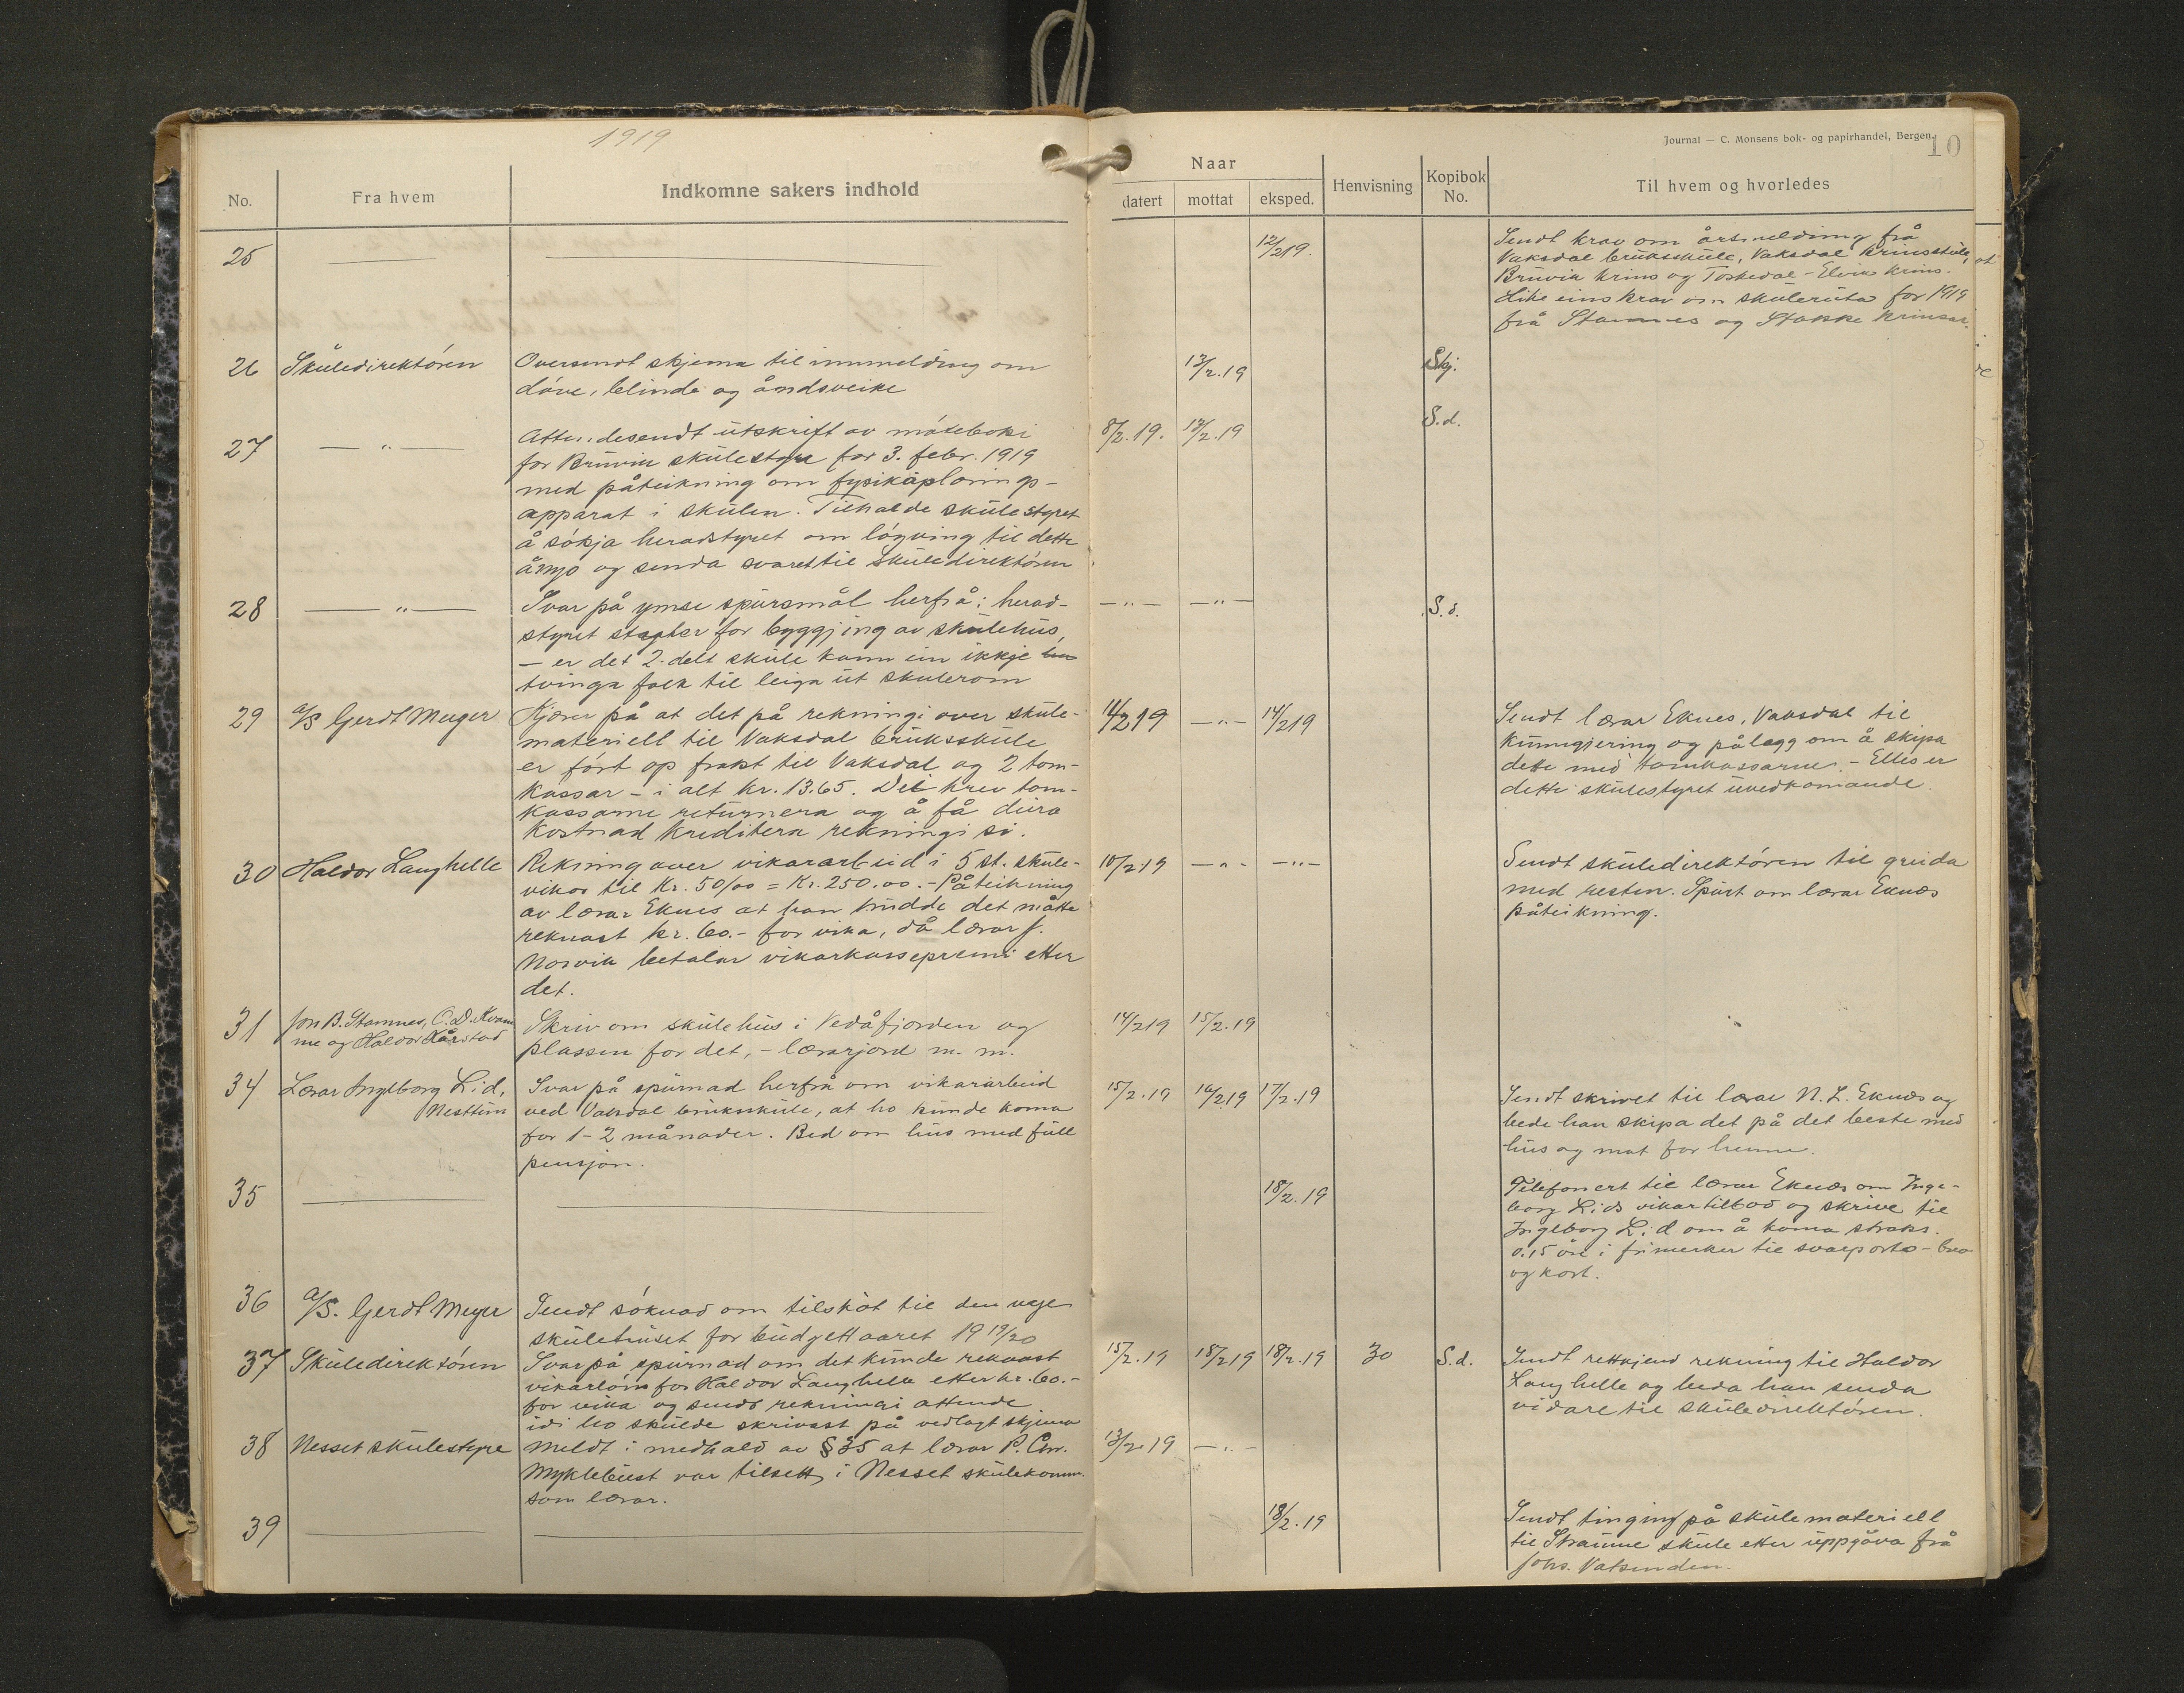 1919
Journal — C. Monsens bok- og papirhandel, Bergen.
10
No.
Fra hvem
Indkomne sakers indhold
Naar
datert
mottat
eksped.
Henvisning
Kopibok No.
Til hvem og hvorledes
25
12/2 19.
Sendt krav om årsmelding frå
Vaksdal bruksskule, Vaksdal krinsskule,
Bruvik krins og Toskedal - Elvik krins.
Like eins krav om skuleruta for 1919
frå Stamnes og Stokke krinsar.
26 Skuledirektören
Oversendt skjema til innmelding om
döve, blinde og åndsveike
13/2.19
Skj.
27 — " —
Attendesendt utskrift av möteboki
for Bruvik skulestyre for 3. febr. 1919
med påteikning om
apparat i skulen. Tilhalde skulestyret
å sökja heradstyret om löyving til dette
ånyo og senda svaret til skuledirektören
8/2.19. 13/2.19
S.d.
28 — " —
Svar på ymse spursmål herfrå: herad-
styret for byggjing av skulehus,
— er det 2-delt skule kann ein ikkje
tvinga folk til leiga ut skulerom
— " — — " —
S.d.
29 A/S Gerdt Meyer
Kjærer på at det på rekningi over skule-
materiell til Vaksdal bruksskule
er fört op frakt til Vaksdal og 2 tom-
kassar - i alt kr. 13.65. Dei krev tom-
kassarne returnera og å få deira
kostnad kreditera rekningi si.
11/2 19 — " — 14/2 19
Sendt lærar Eknes, Vaksdal til
kunngjering og pålegg om å skipa
dette med tomkassarne. - Elles er
dette skulestyret uvedkomande.
30 Haldor Langhelle
Rekning over vikararbeid i 5 st. skule-
vikor til Kr. 50/00 = Kr. 250.00. - Påteikning
av lærar Eknes at han trudde det måtte
reknast kr. 60.- for vika, då lærar J.
Norvik betalar vikarkassepremi etter
det.
10/2.19 — " — — " —
Sendt skuledirektören til greida
med resten. Spurt om lærar Eknæs
påteikning.
31 Jon B. Stamnes, O. D. Kvam-
me og Haldor Kårstad
Skriv om skulehus i Vedåfjorden og
plassen for det, - lærarjord m. m.
14/2 19 15/2.19
34 Lærar Ingeborg Lid,
Nesttun
Svar på spurnad herfrå om vikararbeid
ved Vaksdal bruksskule, at ho kunde koma
for 1-2 månader. Bed om hus med full
pensjon.
15/2.19 16/2 19 17/2.19
Sendt skrivet til lærar N. L. Eknæs og
bede han skipa det på det beste med
hus og mat for henne.
35
18/2.19
Telefonert til lærar Eknæs om Inge-
borg Lids vikartilbod og skrive til
Ingeborg Lid om å koma straks.
0.15 öre i frimerker til svarporto - brev
og kort.
36 A/S. Gerdt Meyer
Sendt söknad om tilskot til den nye
skulehuset for budgettaaret 1919/20
37 Skuledirektören
Svar på spurnad om det kunde reknast
vikarlön for Haldor Langhelle etter kr. 60.-
for vika og sendt rekningi attende
idi ho skulde skrivast på vedlagt skjema
15/2.19 18/2 19 18/2.19 30 S.d.
Sendt rettkjend rekning til Haldor
Langhelle og beda han senda
vidare til skuledirektören.
38 Nesset skulestyre
Meldt i medhald av § 35 at lærar P. Chr.
Myklebust var tilsett i Nesset skulekomm.
som lærar.
13/2.19 — " —
39
18/2.19
Sendt tinging på skulemateriell
til Straume skule etter uppgåva frå
Johs. Vatsenden.